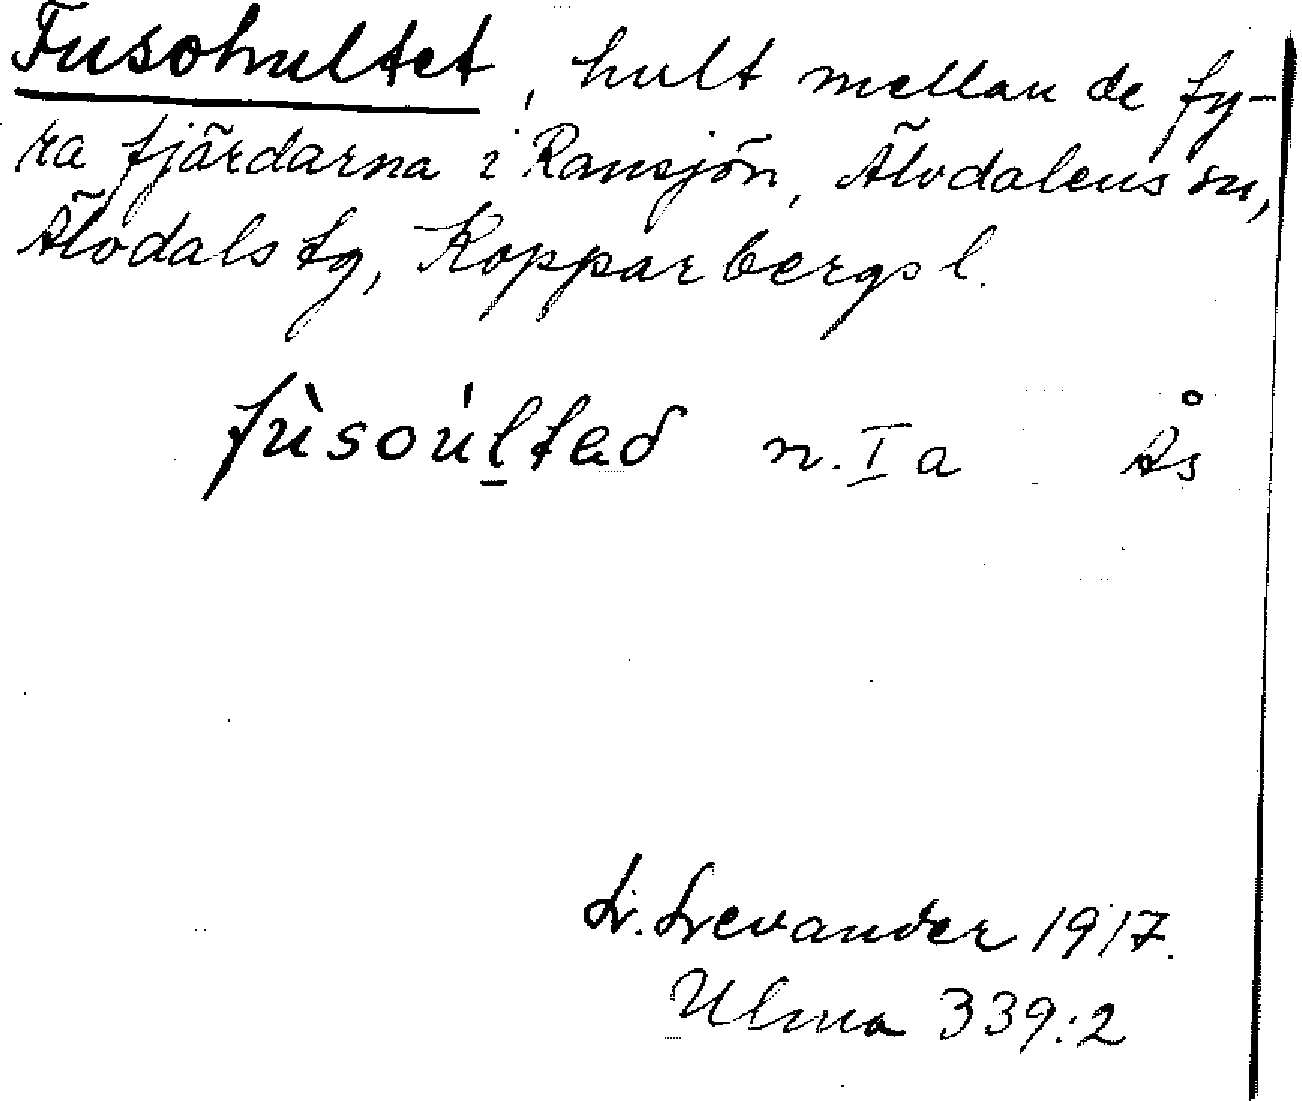 Fusohultet, hult mellan de fy-
ra fjärdarna i Ransjön, Älvdalens sn,
Älvdals tg, Kopparbergs l.
fùsoúltað n. I a Ås
L. Levander 1917.
Ulma 339:2